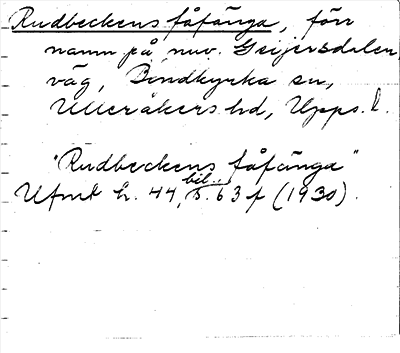 Rudbeckens fåfänga, förr
namn på nuv. Geijersdalen,
väg, Bondkyrka sn,
Ulleråkers hd, Upps. l.
"Rudbeckens fåfänga"
Ufmt h. 44, bil., s. 63 f (1930).